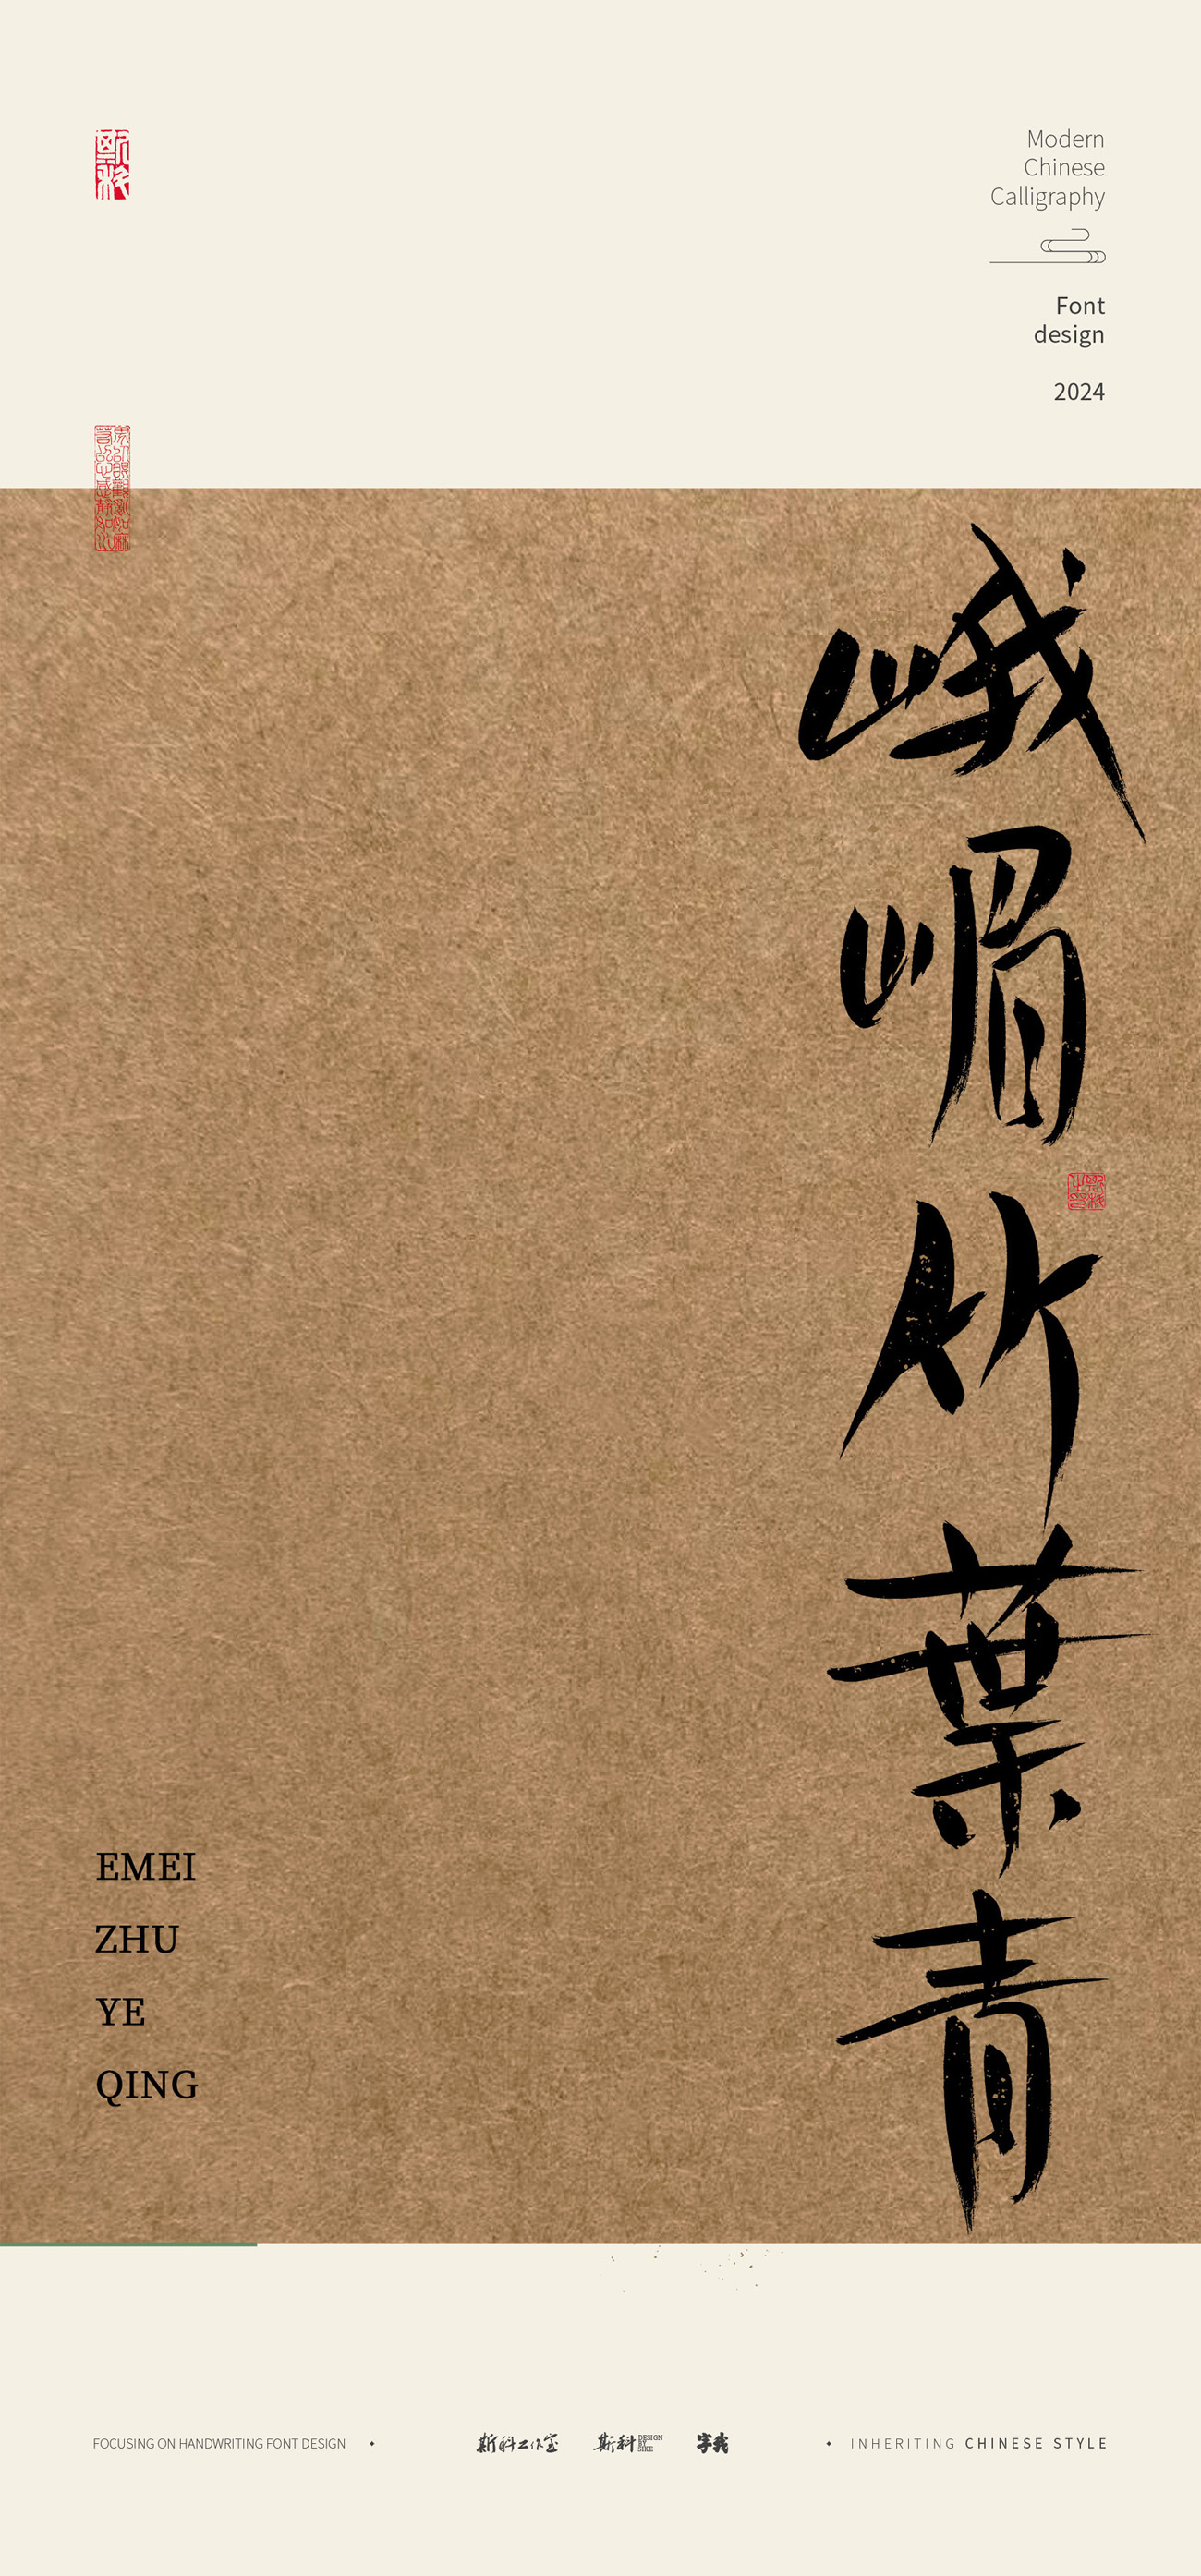 Modern
Chinese
Calligraphy
Font
design
2024
峨嵋竹葉青
EMEI
ZHU
YE
QING
FOCUSING ON HANDWRITING FONT DESIGN
斯科工作室
斯科
DESIGN
BY
SIKE
字我
INHERITING CHINESE STYLE